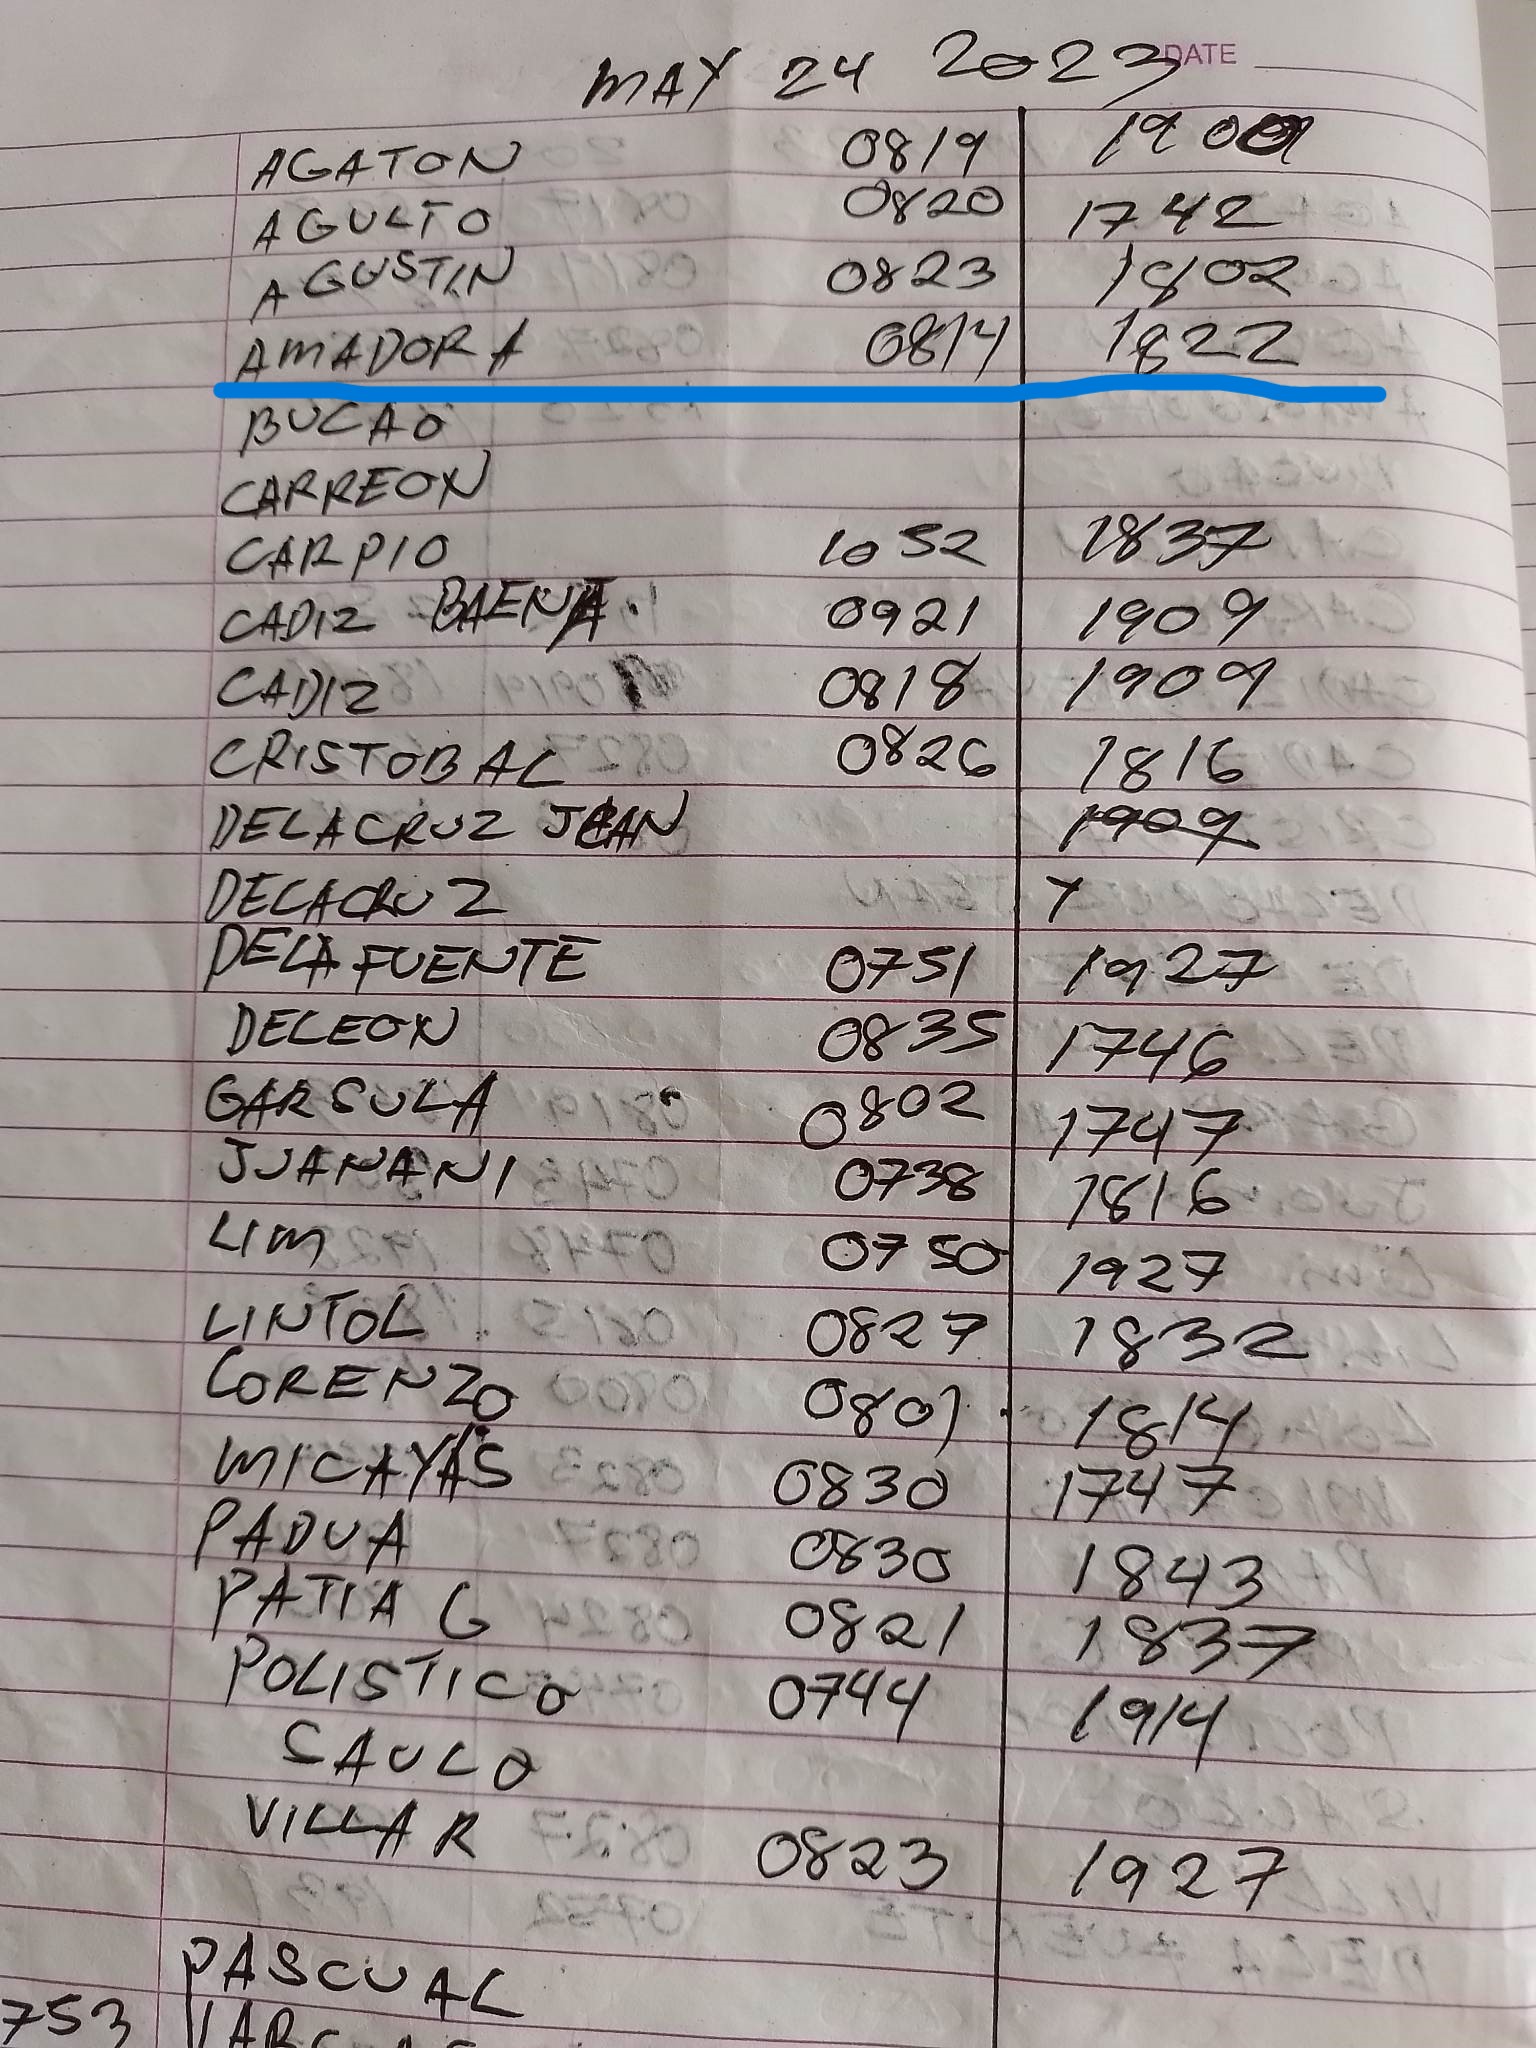 DATE
MAY 24 2023
AGATON 0819 1909
AGULTO 0820 1742
AGUSTIN 0823 1802
AMADORA 0814 1822
BUCAO
CARREON
CARPIO 1052 1837
CADIZ BAENA 0921 1909
CADIZ 0818 1909
CRISTOBAL 0826 1816
DELACRUZ JEAN 1909
DELACRUZ X
DELA FUENTE 0751 1927
DELEON 0835 1746
GARSULA 0802 1747
JUANANI 0738 1816
LIM 0750 1927
LINTOL 0827 1832
LORENZO 0801 1814
MICAYAS 0830 1747
PADUA 0830 1843
PATIAG 0821 1837
POLISTICO 0744 1914
SAULO
VILLAR 0823 1927
PASCUAL
753